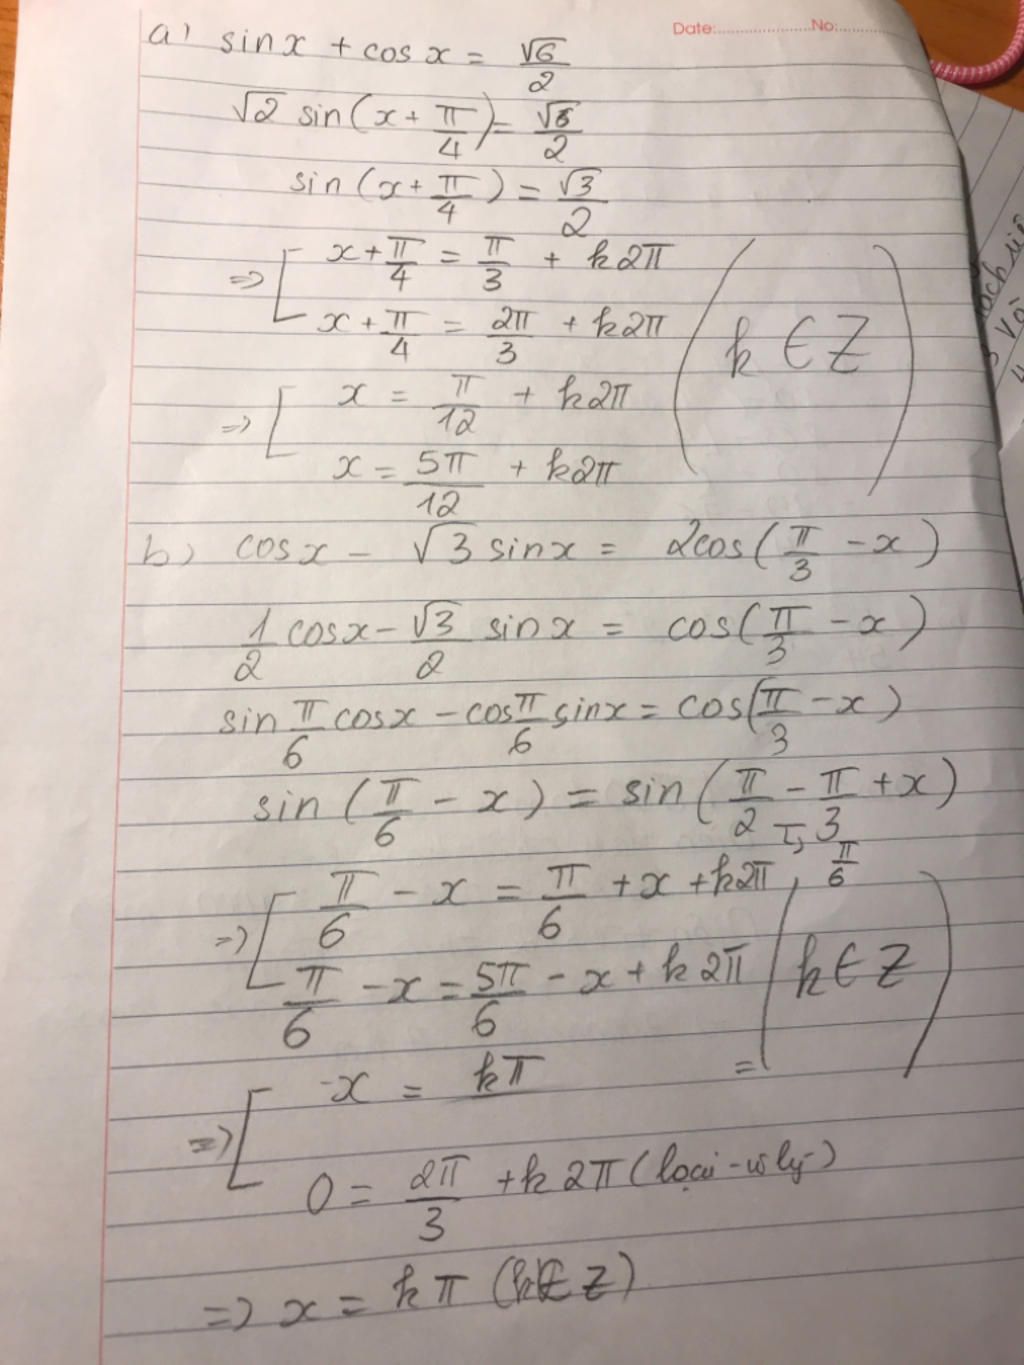 Date:.....................No:..............
a) sin x + cos x = √6/2
√2 sin(x + π/4) = √6/2
sin(x + π/4) = √3/2
=> [ x + π/4 = π/3 + k2π
x + π/4 = 2π/3 + k2π
(k ∈ Z)
=> [ x = π/12 + k2π
x = 5π/12 + k2π
b) cosx - √3 sinx = 2cos(π/3 - x)
1/2 cosx - √3/2 sinx = cos(π/3 - x)
sin π/6 cosx - cos π/6 sinx = cos(π/3 - x)
sin(π/6 - x) = sin(π/2 - π/3 + x)
π/6
=> [ π/6 - x = π/6 + x + k2π
π/6 - x = 5π/6 - x + k2π
(k ∈ Z)
=> [ -x = kπ
0 = 2π/3 + k2π (loại
=> x = kπ (k ∈ Z)